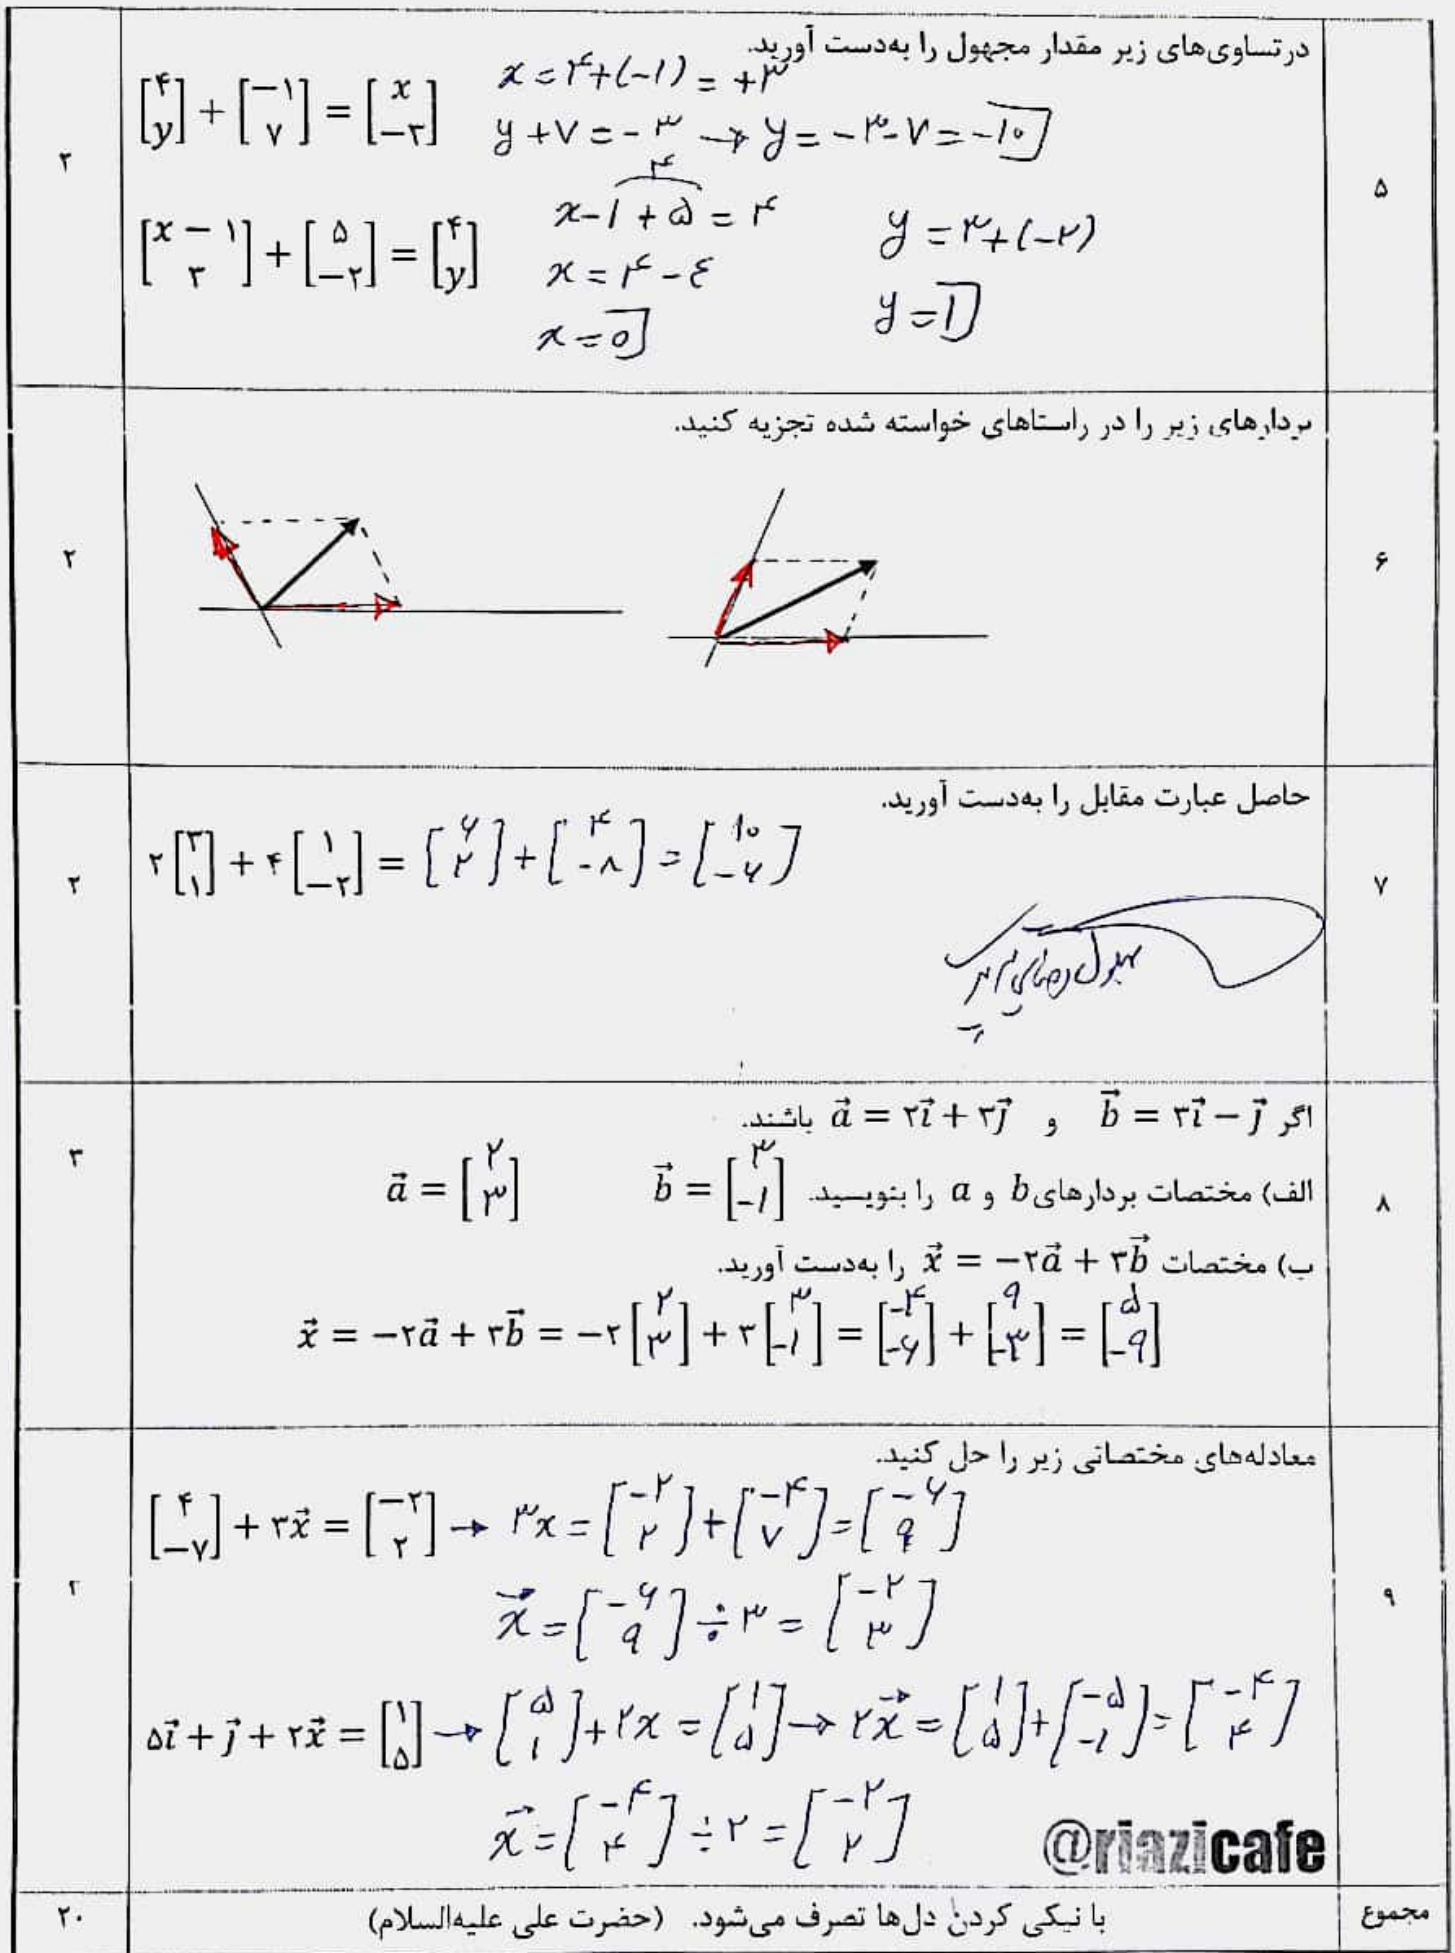 ۵
درتساوی‌های زیر مقدار مجهول را به‌دست آورید.
۲
[۴ y] + [−۱ ۷] = [x −۳]
x = ۴+(-۱) = +۳
y + ۷ = -۳ → y = -۳-۷ = -۱۰
[x − ۱ ۳] + [۵ −۲] = [۴ y]
۴
x-۱ + ۵ = ۴
x = ۴ - ٤
x = ۰
y = ۳+(-۲)
y = ۱
۶
بردارهای زیر را در راستاهای خواسته شده تجزیه کنید.
۲
۷
حاصل عبارت مقابل را به‌دست آورید.
۲
۲ [۳ ۱] + ۴ [۱ −۲] = [۶ ۲] + [۴ -۸] = [۱۰ -۶]
۸
اگر b⃗ = ۳i⃗ − j⃗ و a⃗ = ۲i⃗ + ۳j⃗ باشند.
۳
الف) مختصات بردارهای b و a را بنویسید. b⃗ = [۳ -۱] a⃗ = [۲ ۳]
ب) مختصات x⃗ = −۲a⃗ + ۳b⃗ را به‌دست آورید.
x⃗ = −۲a⃗ + ۳b⃗ = −۲ [۲ ۳] + ۳ [۳ -۱] = [-۴ -۶] + [۹ -۳] = [۵ -۹]
۹
معادله‌های مختصاتی زیر را حل کنید.
[۴ −۷] + ۳x⃗ = [−۲ ۲] → ۳x = [-۲ ۲] + [-۴ ۷] = [-۶ ۹]
x⃗ = [-۶ ۹] ÷ ۳ = [-۲ ۳]
۵i⃗ + j⃗ + ۲x⃗ = [۱ ۵] → [۵ ۱] + ۲x = [۱ ۵] → ۲x⃗ = [۱ ۵] + [-۵ -۱] = [-۴ ۴]
x⃗ = [-۴ ۴] ÷ ۲ = [-۲ ۲]
@riazicafe
مجموع
با نیکی کردن دل‌ها تصرف می‌شود. (حضرت علی علیه‌السلام)
۲۰